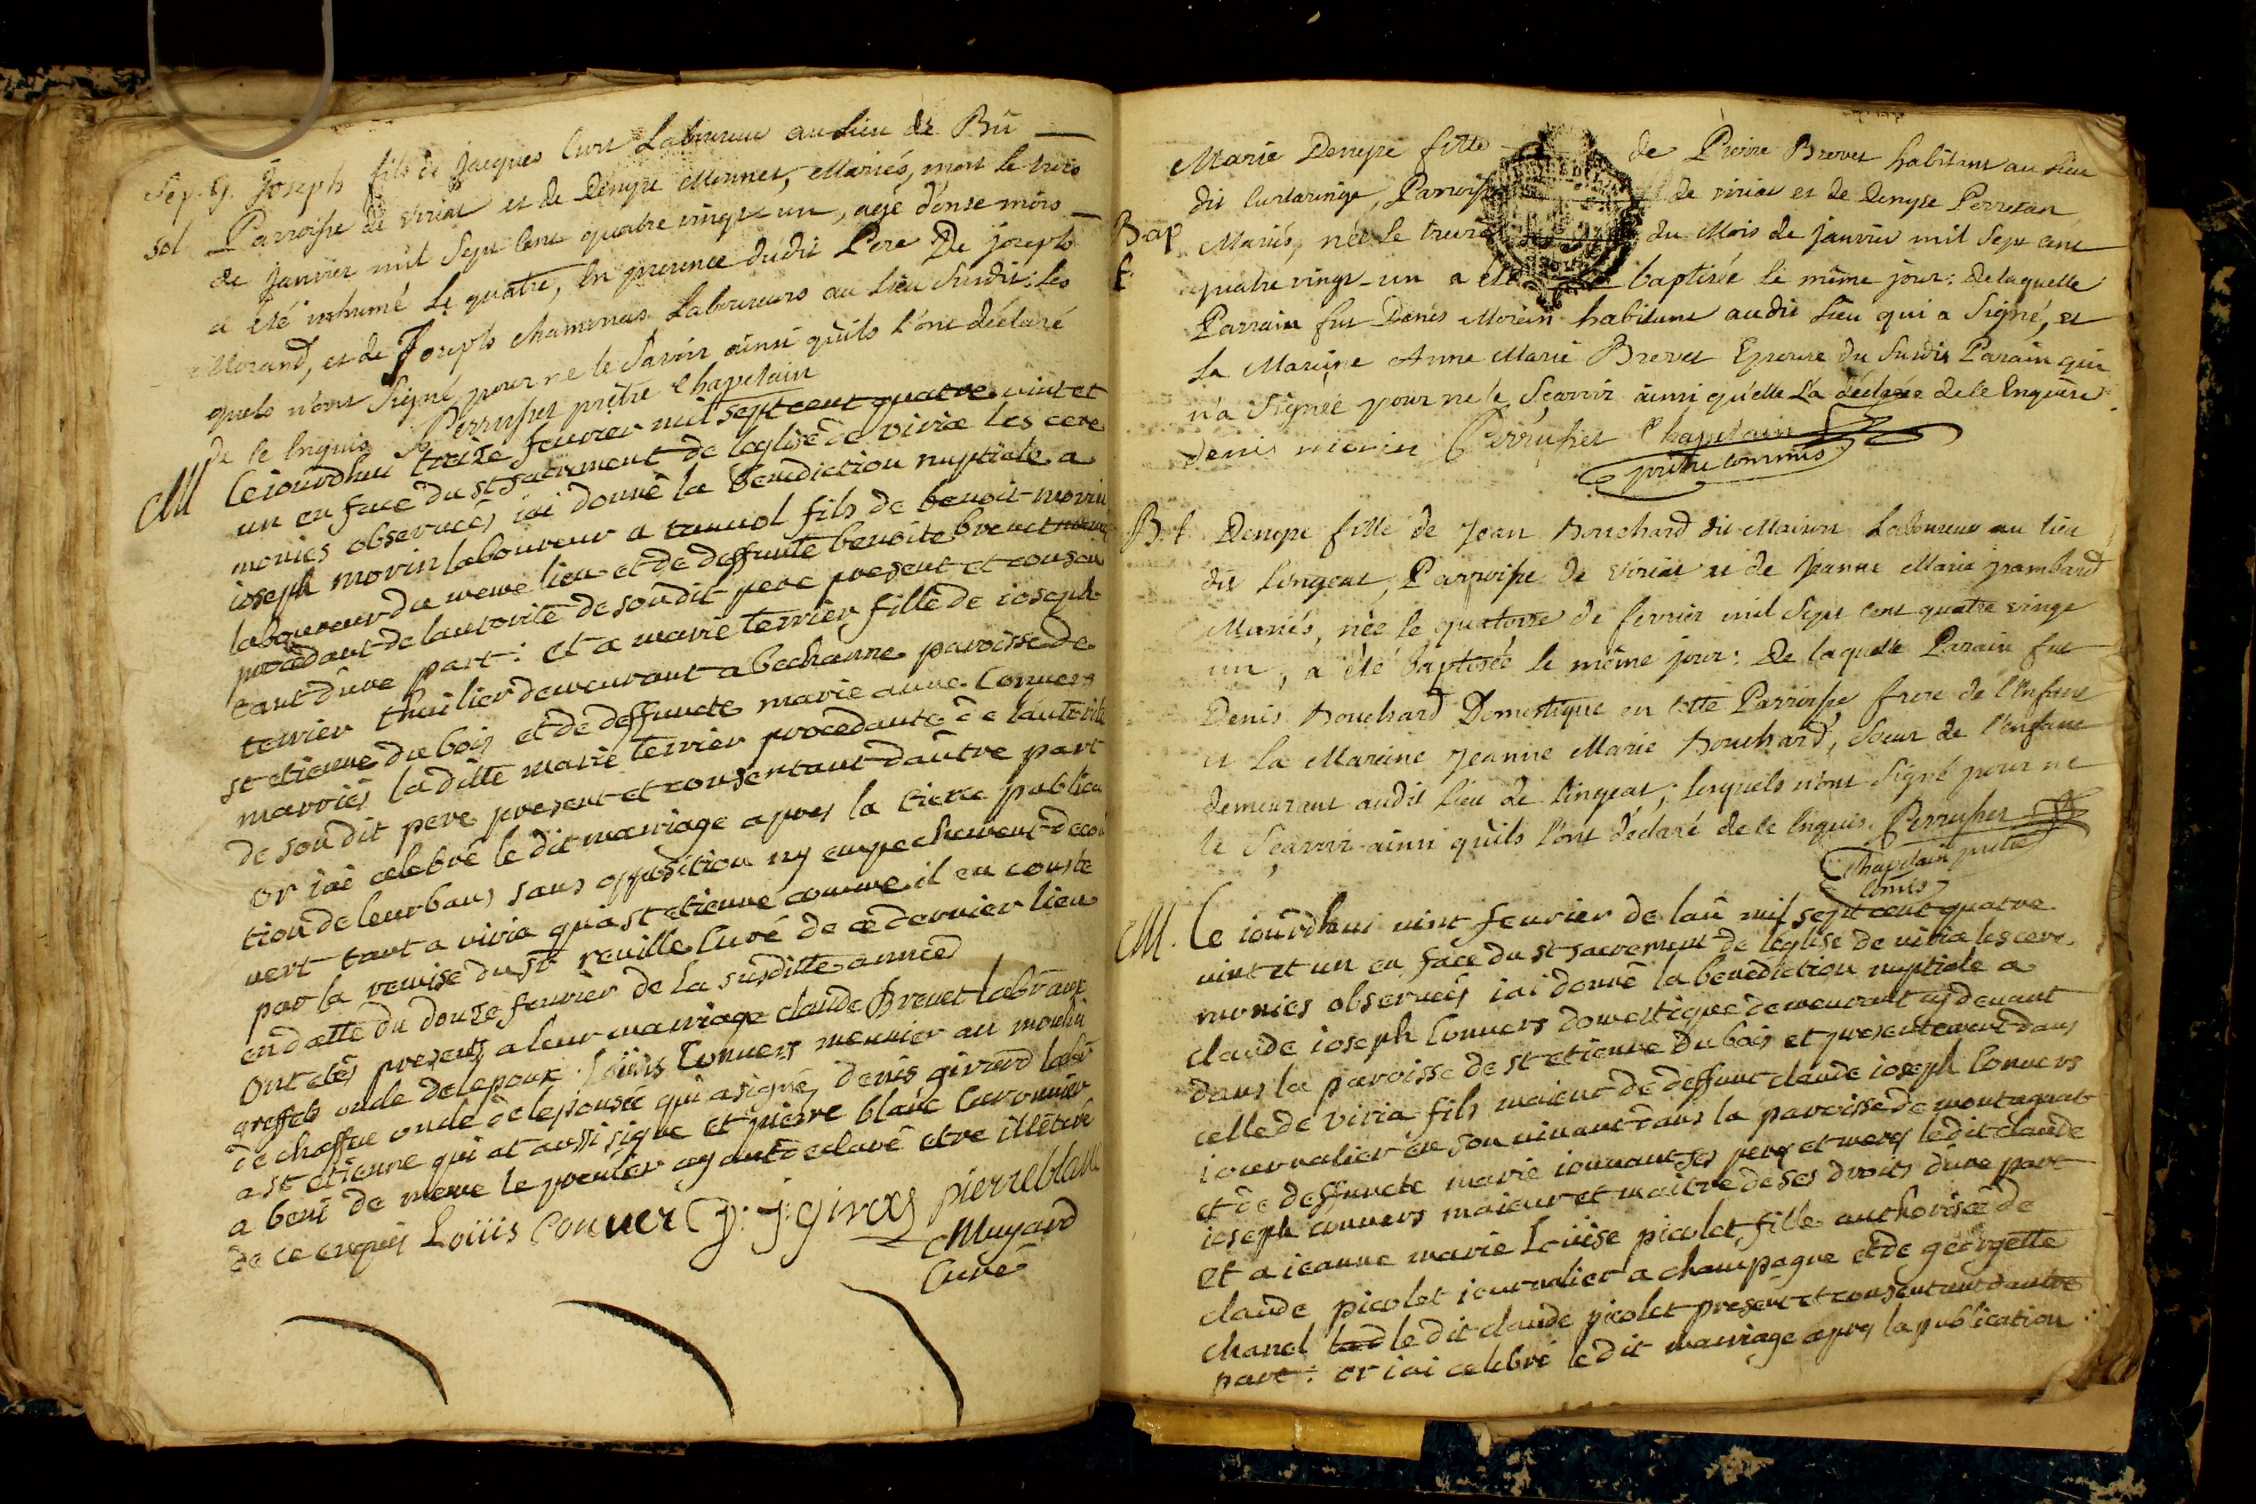 Sep. g. Joseph fils de Jacques Curt Laboureur au Lieu de Bû
sol Parroisse de Viriat et de Denyse Monnet, Mariés, mort le trois
de Janvier mil Sept Cent quatre vingt un, agé d'onse mois
a été inhumé le quatre, en presence dudit Pere De joseph
Morand, et de Joseph chaminas Laboureurs au Lieu Susdit; les
quels n'ont Signé pour ne le Savoir ainsi qu'ils l'ont déclaré
de le Enquis Perruset prêtre Chapelain
M Ce iourdhui treize feuvrer mil sept cent quatre vint et
un en face du st Sacrement de leglise de viria les cere
monies observeés iai donné la Benediction nuptiale a
ioseph morin laboureur a tanuol fils de benoit morin
laboureur du meme lieu et de deffunte benoite brevet
procedant de lautorité de son dit pere present et consen
tant dune part: et a marie terrier fille de ioseph
terrier thuilier demeurant a bechanne paroisse de
st etienne du bois et de deffuncte marie anne Convers
marriés la ditte marie terrier procedante de lautorité
de son dit pere present et consentant dautre part
or iai celebré le dit mariage apres la tierce publica
tion de leur bans sans opposition ny empechement decou
vert tant a viria qua st etienne comme il en conste
par la remise du sr reuille Curé de ce dernier lieu
en datte du douze feuvrier de la susditte année
Ont etés presents a leur mariage claude Brevet labr aux
greffets oncle de lepoux. Loüis Convers meunier au moulin
de chaffoux oncle de lepousée qui a signé, denis girard labr
a st etienne qui at aussi signe et pierre blanc Curonnier
a beni de meme le premier ayant declaré etre illiteré
de ce enquis Loüis Conver D: j: girard pierre blanc
Muyard
Curé
Marie Denyse fille de Pierre Brevet habitant au lieu
dit Curtaringe, Parroisse de viriat et de Denyse Perretan
Bap Mariés, née le treize du Mois de Janvier mil Sept cent
f. quatre vingt un a été baptisée le même jour: de laquelle
Parrain fut Denis Morin habitant audit Lieu qui a Signé, et
La Maraine Anne Marie Brevet Epouse du Susdit Parain qui
n'a Signée pour ne le Sçavoir ainsi qu'elle L'a déclarée de le Enquise.
denis morin Perruset Chapelain
prêtre Commis
B. f. Denyse fille de Jean Bouchard dit Mairon Laboureur au lieu
dit Lingeat, Parroisse de viriat et de Jeanne Marie pambard
Mariés, née le quatorze de fevrier mil Sept Cent quatre vingt
un, a été baptisée le même jour: De laquelle Parain fut
Denis Bouchard Domestique en cette Parroisse frere de l'Enfant
et La Maraine Jeanne Marie Bouchard, Soeur de l'enfant
demeurant audit Lieu de Lingeat; lesquels n'ont Signé pour ne
le Sçavoir ainsi qu'ils l'ont déclaré de le Enquis. Perruset
Chapelain prêtre
Comis
M. Ce iourdhui vint feuvrier de lan mil sept cent quatre
vint et un en face du st sacrement de leglise de viria les cere
monies observeés iai donné la benediction nuptiale a
claude ioseph Convers domestique demeurant cy devant
dans la paroisse de st etienne du bois et presentement dans
celle de viria fils maieur de deffunt claude ioseph Convers
iournalier en son vivant dans la paroisse de montagnat
et de deffuncte marie iouvant ses pere et meres ledit claude
ioseph convers maieur et maitre de ses droits dune part
et a ieanne marie Loüise picolet fille authorisée de
claude picolet iournalier a champagne et de georgette
chanel le dit claude picolet present et consentant dautre
part: or iai celebré le dit mariage apres la publication